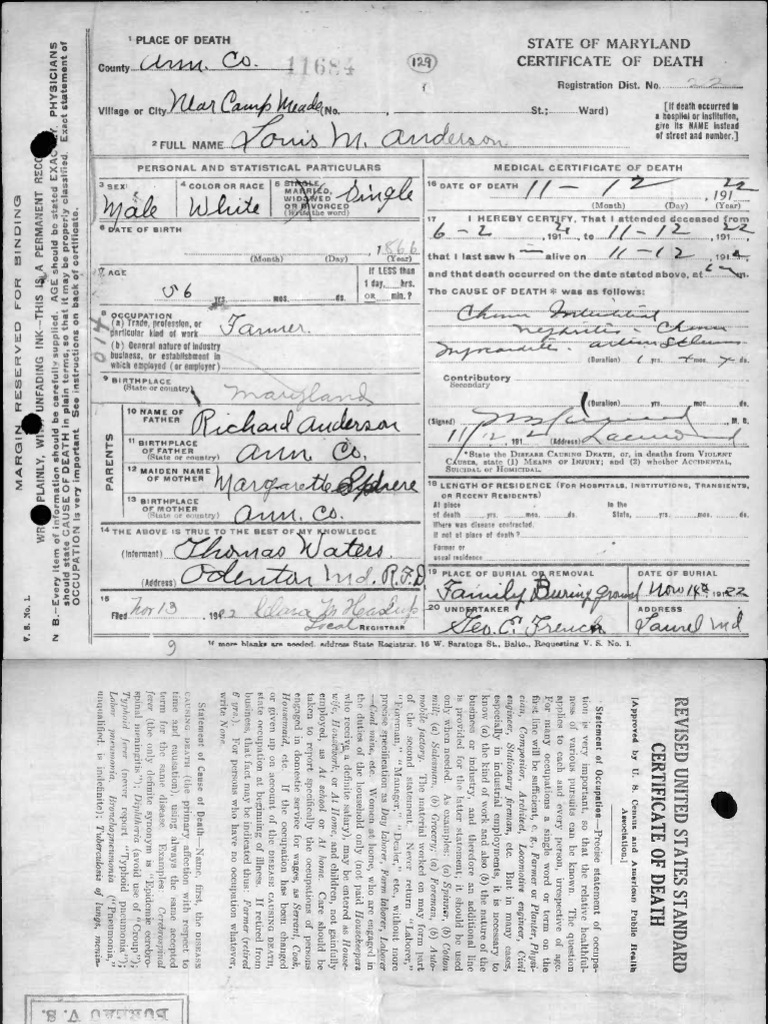 1 PLACE OF DEATH
County Ann. Co. 11684 129
STATE OF MARYLAND
CERTIFICATE OF DEATH
Registration Dist. No. 22
Village or City Near Camp Meade (No. St.; Ward)
[If death occurred in a hospital or institution, give its NAME instead of street and number.]
2 FULL NAME Louis M. Anderson
PERSONAL AND STATISTICAL PARTICULARS
3 SEX Male
4 COLOR OR RACE White
5 SINGLE, MARRIED, WIDOWED OR DIVORCED (Write the word) Single
6 DATE OF BIRTH
1866
(Month) (Day) (Year)
7 AGE
56 yrs. mos. ds.
If LESS than 1 day, hrs. OR min.?
8 OCCUPATION
(a) Trade, profession, or particular kind of work Farmer.
(b) General nature of industry business, or establishment in which employed (or employer)
014
9 BIRTHPLACE
(State or country) Maryland
PARENTS
10 NAME OF FATHER Richard Anderson
11 BIRTHPLACE OF FATHER (State or country) Ann Co,
12 MAIDEN NAME OF MOTHER Margarette
13 BIRTHPLACE OF MOTHER (State or country) Ann. Co.
14 THE ABOVE IS TRUE TO THE BEST OF MY KNOWLEDGE
(Informant) Thomas Waters.
(Address) Odenton Md. R.F.D
15
Filed Nov 13 1922 Clara M
Local REGISTRAR
MEDICAL CERTIFICATE OF DEATH
16 DATE OF DEATH 11 - 12 22
(Month) (Day) (Year)
17 I HEREBY CERTIFY, That I attended deceased from
6-2 191 to 11-12 22, 191
that I last saw h alive on 11-12 191
and that death occurred on the date stated above, at m.
The CAUSE OF DEATH * was as follows:
Chronic Interstitial
Nephritis - Chronic
Myocarditis.
(Duration) 1 yrs. mos. ds.
Contributory
Secondary
(Duration) yrs. mos. ds.
(Signed) M. D.
11/12, 191 2 (Address)
*State the DISEASE CAUSING DEATH, or, in deaths from VIOLENT CAUSES, state (1) MEANS OF INJURY; and (2) whether ACCIDENTAL, SUICIDAL or HOMICIDAL.
18 LENGTH OF RESIDENCE (FOR HOSPITALS, INSTITUTIONS, TRANSIENTS, OR RECENT RESIDENTS)
At place of death yrs. mos. ds. In the State, yrs. mos. ds.
Where was disease contracted,
If not at place of death?
Former or
usual residence
19 PLACE OF BURIAL OR REMOVAL
Family Buring Ground
DATE OF BURIAL
Nov 14th, 1922
20 UNDERTAKER
Geo. E. French
ADDRESS
Laurel Md
9
If more blanks are needed, address State Registrar, 16 W. Saratoga St., Balto., Requesting V. S. No. 1.
V. S. No. 1.
MARGIN RESERVED FOR BINDING
WRITE PLAINLY, WITH UNFADING INK—THIS IS A PERMANENT RECORD
N. B.—Every item of information should be carefully supplied. AGE should be stated EXACTLY. PHYSICIANS
should state CAUSE OF DEATH in plain terms, so that it may be properly classified. Exact statement of
OCCUPATION is very important. See instructions on back of certificate.
REVISED UNITED STATES STANDARD
CERTIFICATE OF DEATH
[Approved by U. S. Census and American Public Health
Association.]
Statement of Occupation—Precise statement of occupa-
tion is very important, so that the relative healthful-
ness of various pursuits can be known. The question
applies to each and every person irrespective of age.
For many occupations a single word or term on the
first line will be sufficient, e. g., Farmer or Planter, Physi-
cian, Compositor, Architect, Locomotive engineer, Civil
engineer, Stationary fireman, etc. But in many cases,
especially in industrial employments, it is necessary to
know (a) the kind of work and also (b) the nature of the
business or industry, and therefore an additional line
is provided for the latter statement; it should be used
only when needed. As examples: (a) Spinner, (b) Cotton
mill; (a) Salesman, (b) Grocery; (a) Foreman, (b) Auto-
mobile factory. The material worked on may form part
of the second statement. Never return "Laborer,"
"Foreman," "Manager," "Dealer," etc., without more
precise specification as Day laborer, Farm laborer, Laborer
—Coal mine, etc. Women at home, who are engaged in
the duties of the household only (not paid Housekeepers
who receive a definite salary), may be entered as House-
wife, Housework, or At Home, and children, not gainfully
employed, as At school or At home. Care should be
taken to report specifically the occupations of persons
engaged in domestic service for wages, as Servant, Cook,
Housemaid, etc. If the occupation has been changed
or given up on account of the DISEASE CAUSING DEATH,
state occupation at beginning of illness. If retired from
business, that fact may be indicated thus: Farmer (retired
6 yrs.). For persons who have no occupation whatever,
write None.
Statement of Cause of Death—Name, first, the DISEASE
CAUSING DEATH (the primary affection with respect to
time and causation), using always the same accepted
term for the same disease. Examples: Cerebrospinal
fever (the only definite synonym is "Epidemic cerebro-
spinal meningitis"); Diphtheria (avoid use of "Croup");
Typhoid fever (never report "Typhoid pneumonia");
Lobar pneumonia, Bronchopneumonia ("Pneumonia,"
unqualified, is indefinite); Tuberculosis of lungs, menin-
BUREAU V. S.